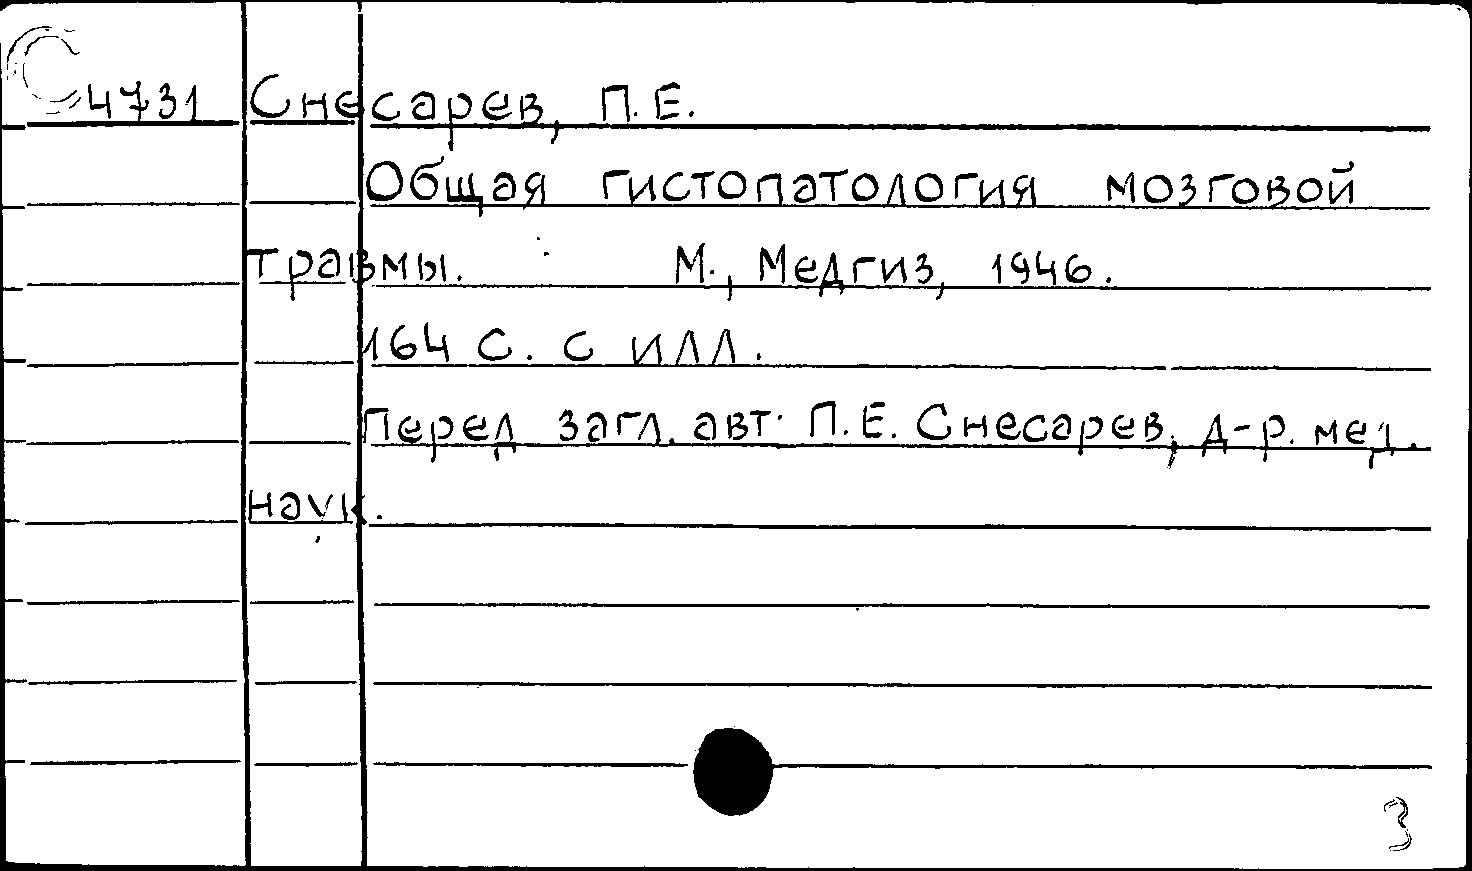 С 4731 Снесарев, П.Е.
Общая гистопатология мозговой
травмы. М., Медгиз, 1946.
164 с. с илл.
Перед загл. авт. П.Е. Снесарев, д-р. мед.
наук.
3